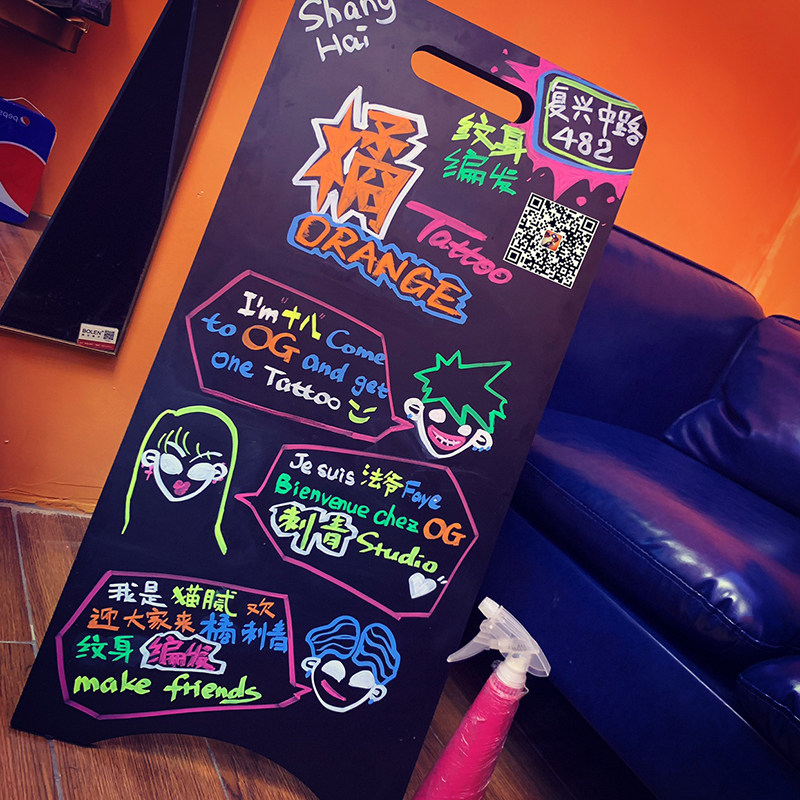 Shang
Hai
复兴中路
482
纹身
编发
橘
Tattoo
ORANGE
I'm "十八" Come
to OG and get
one Tattoo
Je suis 法爷 Faye
Bienvenue chez OG
刺青 Studio
我是 猫腻 欢
迎大家来 橘 刺青
纹身 编发
make friends
BOLEN